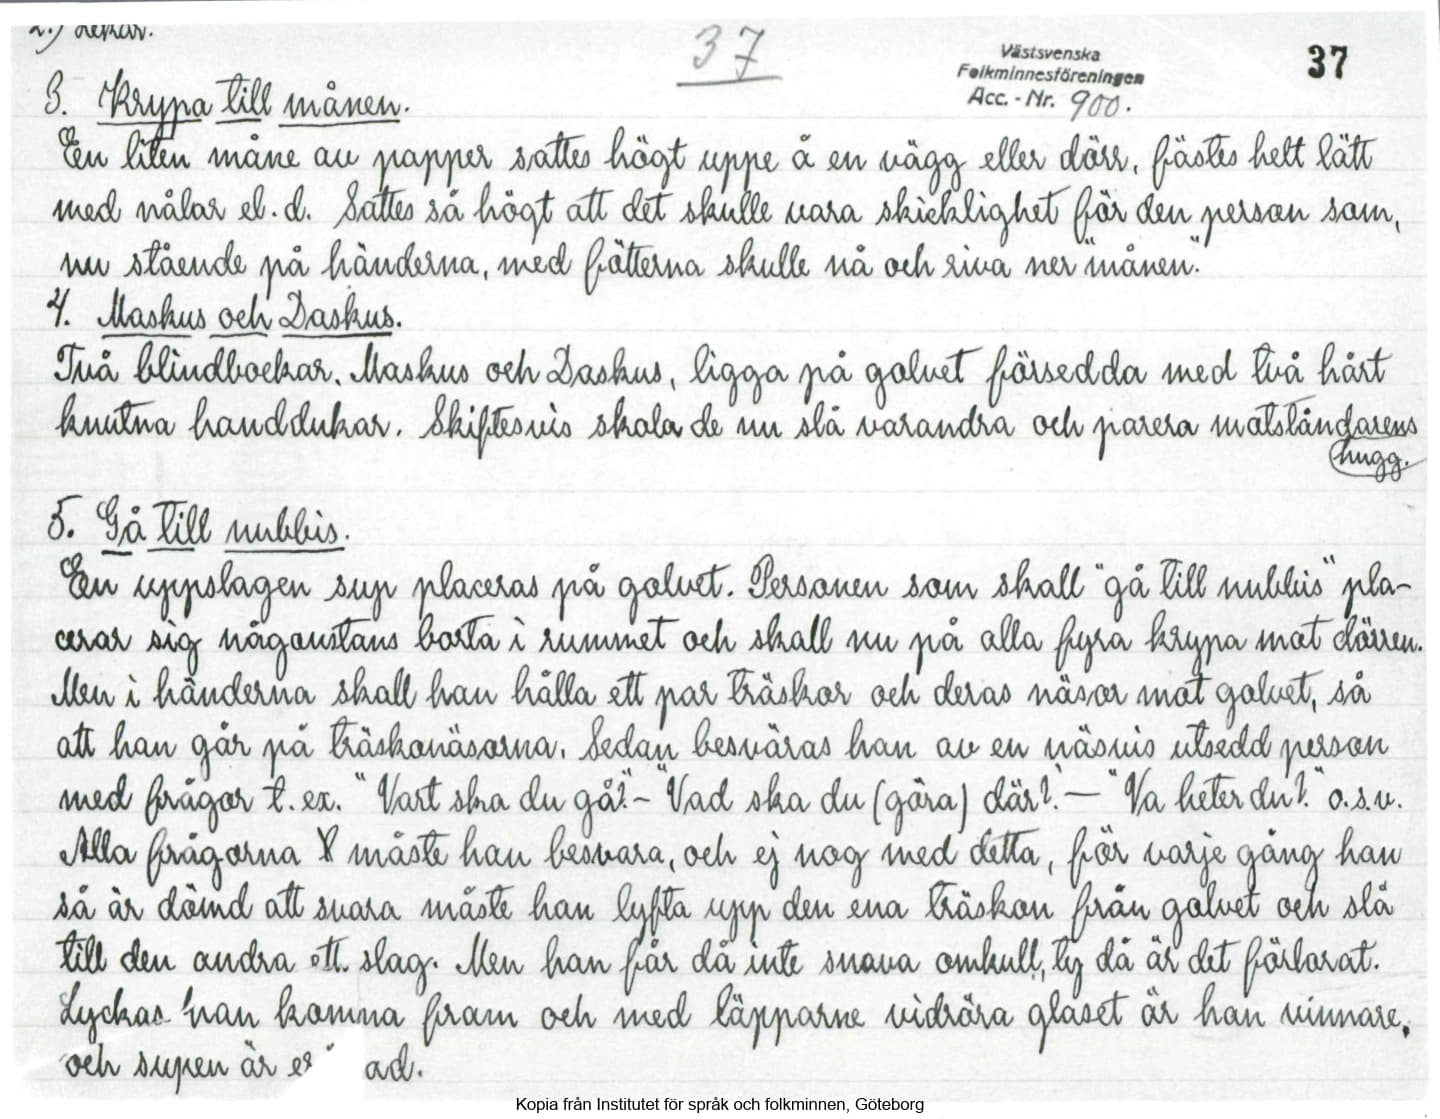 2.) Lekar.
37
Västsvenska
Folkminnesföreningen
Acc. - Nr. 900.
37
3. Krypa till månen.
En liten måne av papper sattes högt uppe å en vägg eller dörr, fästes helt lätt
med nålar el. d. Sattes så högt att det skulle vara skicklighet för den person som,
nu stående på händerna, med fötterna skulle nå och riva ner "månen".
4. Maskus och Daskus.
Två blindbockar. Maskus och Daskus, ligga på golvet försedda med två hårt
knutna handdukar. Skiftesvis skola de nu slå varandra och parera motståndarens
hugg.
5. Gå till nubbis.
En uppslagen sup placeras på golvet. Personen som skall "gå till nubbis" pla-
cerar sig någonstans borta i rummet och skall nu på alla fyra krypa mot dörren.
Men i händerna skall han hålla ett par träskor och deras näsor mot golvet, så
att han går på träskonäsorna. Sedan besväras han av en näsvis utsedd person
med frågor t. ex. "Vart ska du gå?" - "Vad ska du (göra) där?" — "Va heter du?" o.s.v.
Alla frågorna måste han besvara, och ej nog med detta, för varje gång han
så är dömd att svara måste han lyfta upp den ena träskon från golvet och slå
till den andra ett slag. Men han får då inte snava omkull, ty då är det förlorat.
Lyckas han komma fram och med läpparne vidröra glaset är han vinnare,
och supen är er ad.
Kopia från Institutet för språk och folkminnen, Göteborg